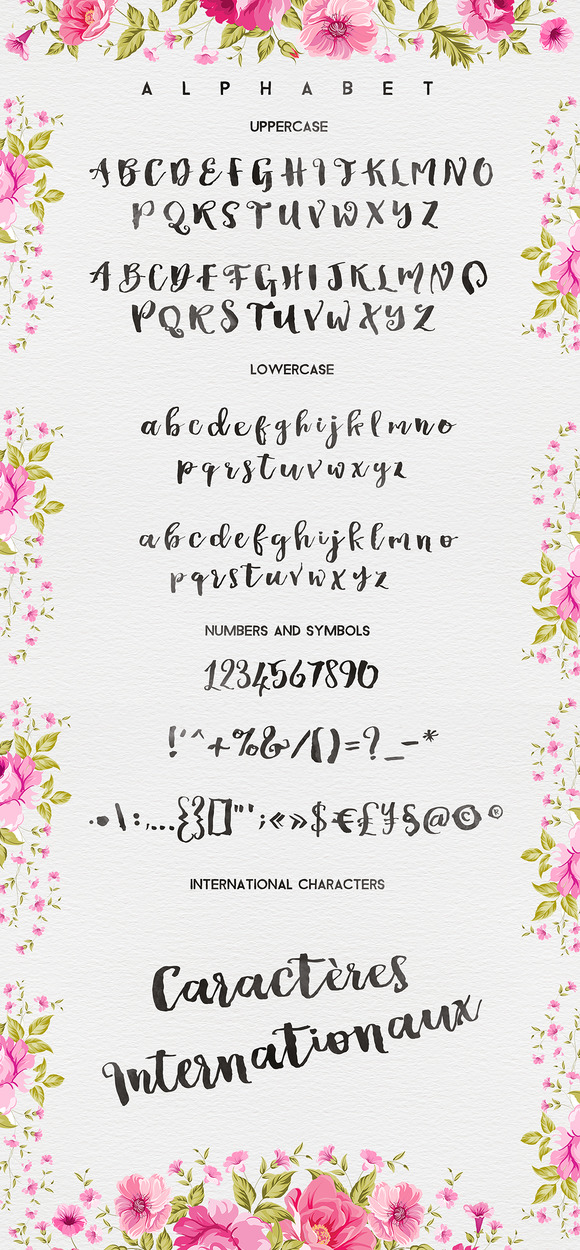 ALPHABET
UPPERCASE
ABCDEFGHIJKLMNO
PQRSTUVWXYZ
ABCDEFGHIJKLMNO
PQRSTUVWXYZ
LOWERCASE
abcdefghijklmno
pqrstuvwxyz
abcdefghijklmno
pqrstuvwxyz
NUMBERS AND SYMBOLS
1234567890
!'^+%&/()=?_-*
·•\:,...{}[]"';«»$€£¥§@©®
INTERNATIONAL CHARACTERS
Caractères
Internationaux